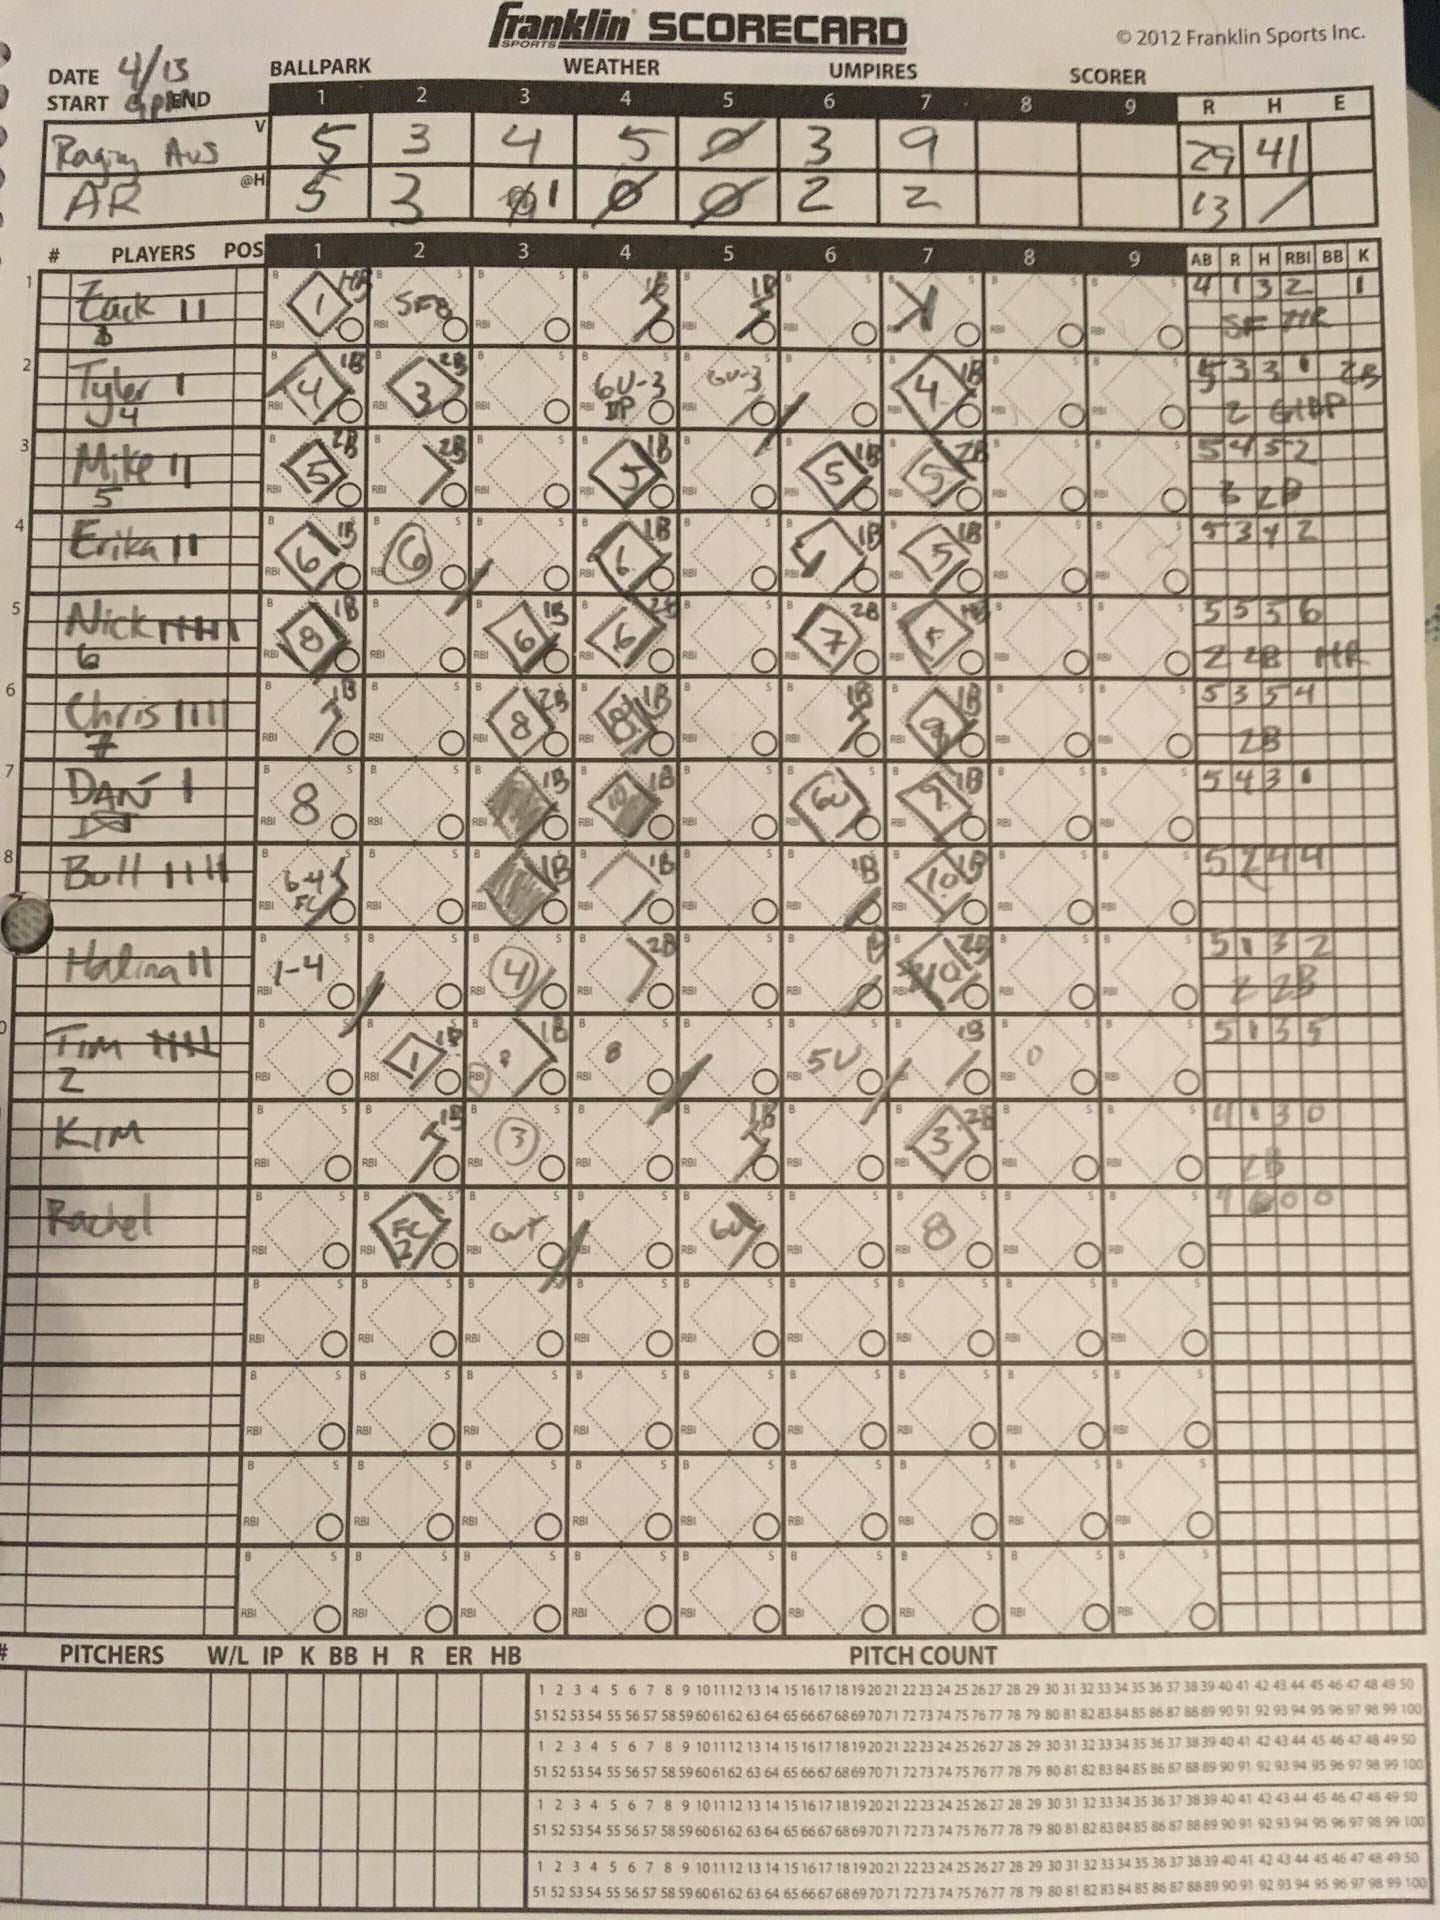 Franklin SPORTS SCORECARD
© 2012 Franklin Sports Inc.
DATE 4/13 BALLPARK WEATHER UMPIRES SCORER
START END
1 2 3 4 5 6 7 8 9 R H E
V 5 3 4 5 0 3 9 29 41
AR @H 5 3 1 0 0 2 2 13 /
# PLAYERS POS 1 2 3 4 5 6 7 8 9 AB R H RBI BB K
1 Zack 1 HR SF8 1B 1B K 4 1 3 2 1
SF HR
2 Tyler 4 1B 3 2B 6U-3 DP 6U-3 4 1B 5 3 3 1 2B
4 2 GIDP
3 Mike 5 2B 2B 5 1B 5 1B 5 2B 5 4 5 2
5 3 2B
4 Erika 6 1B 6 6 1B 1B 5 1B 5 3 4 2
5 Nick 8 1B 6 1B 6 2B 7 2B HR 5 5 5 6
6 2 2B HR
6 Chris 1B 8 2B 8 1B 1B 9 1B 5 3 5 4
7 2B
7 DAN 8 1B 10 1B 6U 9 1B 5 4 3 1
8 Bull 6-4 FC 1B 1B 1B 10 1B 5 2 4 4
Halina 1-4 4 2B 1B 10 2B 5 1 3 2
2 2B
Tim 1 1B 8 1B 8 5U 1B 0 5 1 3 5
2
KIM 1B 3 1B 3 2B 4 1 3 0
2B
Rachel FC 2 OUT 6U 8 4 0 0
# PITCHERS W/L IP K BB H R ER HB PITCH COUNT
1 2 3 4 5 6 7 8 9 10 11 12 13 14 15 16 17 18 19 20 21 22 23 24 25 26 27 28 29 30 31 32 33 34 35 36 37 38 39 40 41 42 43 44 45 46 47 48 49 50
51 52 53 54 55 56 57 58 59 60 61 62 63 64 65 66 67 68 69 70 71 72 73 74 75 76 77 78 79 80 81 82 83 84 85 86 87 88 89 90 91 92 93 94 95 96 97 98 99 100
1 2 3 4 5 6 7 8 9 10 11 12 13 14 15 16 17 18 19 20 21 22 23 24 25 26 27 28 29 30 31 32 33 34 35 36 37 38 39 40 41 42 43 44 45 46 47 48 49 50
51 52 53 54 55 56 57 58 59 60 61 62 63 64 65 66 67 68 69 70 71 72 73 74 75 76 77 78 79 80 81 82 83 84 85 86 87 88 89 90 91 92 93 94 95 96 97 98 99 100
1 2 3 4 5 6 7 8 9 10 11 12 13 14 15 16 17 18 19 20 21 22 23 24 25 26 27 28 29 30 31 32 33 34 35 36 37 38 39 40 41 42 43 44 45 46 47 48 49 50
51 52 53 54 55 56 57 58 59 60 61 62 63 64 65 66 67 68 69 70 71 72 73 74 75 76 77 78 79 80 81 82 83 84 85 86 87 88 89 90 91 92 93 94 95 96 97 98 99 100
1 2 3 4 5 6 7 8 9 10 11 12 13 14 15 16 17 18 19 20 21 22 23 24 25 26 27 28 29 30 31 32 33 34 35 36 37 38 39 40 41 42 43 44 45 46 47 48 49 50
51 52 53 54 55 56 57 58 59 60 61 62 63 64 65 66 67 68 69 70 71 72 73 74 75 76 77 78 79 80 81 82 83 84 85 86 87 88 89 90 91 92 93 94 95 96 97 98 99 100